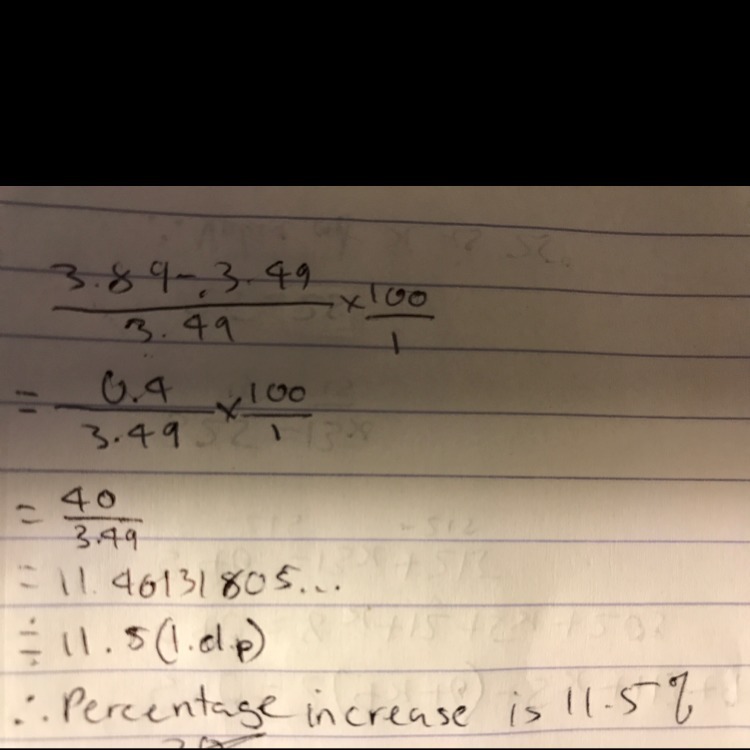 3.89-3.49/3.49 × 100/1
= 0.4/3.49 × 100/1
= 40/3.49
= 11.46131805...
≑ 11.5(1.d.p)
∴ Percentage increase is 11.5%